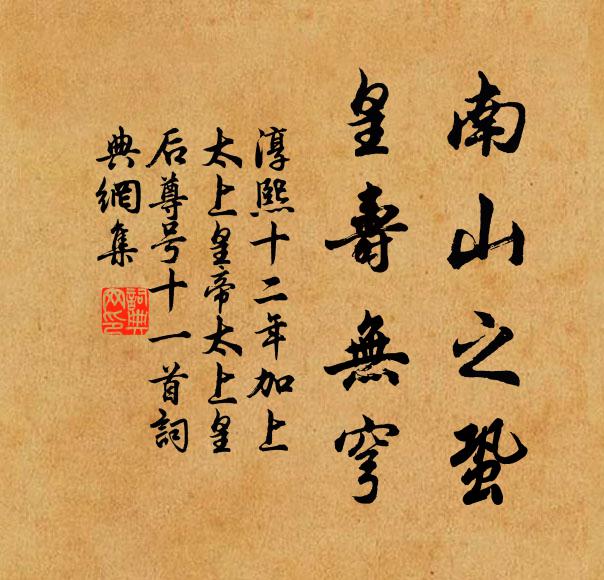 南山之蛩
皇壽無穹
淳熙十二年加上
太上皇帝太上皇
后尊号十一首詞
典網集
詞典
网印